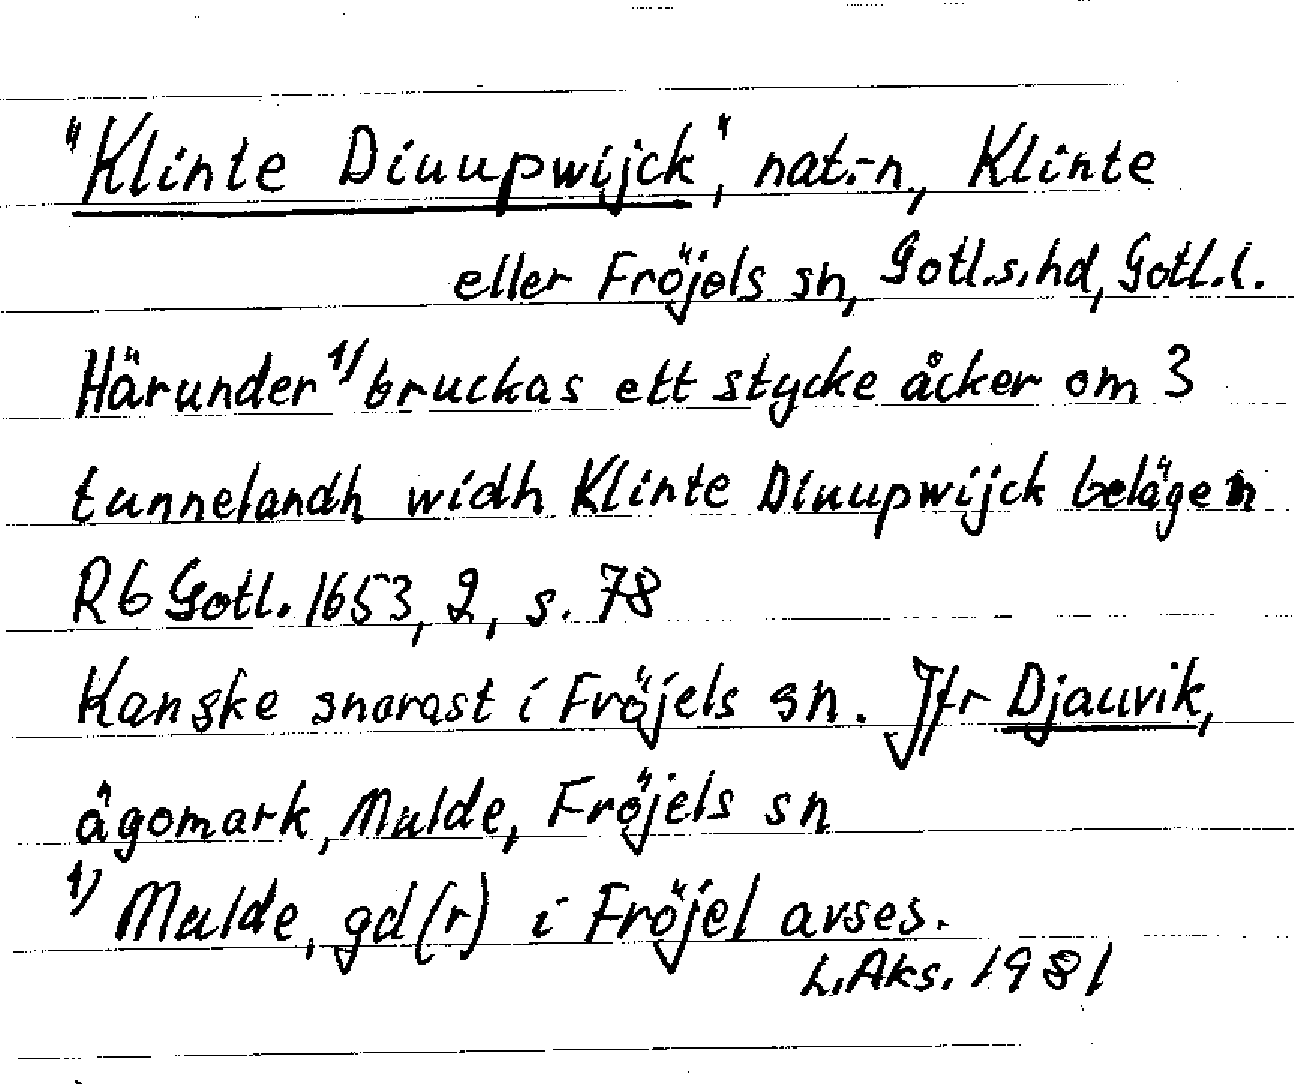 "Klinte Diuupwijck", nat.-n, Klinte
eller Fröjels sn, Gotl.s.hd, Gotl.l.
Härunder 1) bruckas ett stycke åcker om 3
tunnelandh widh Klinte Diuupwijck belägen
Rb Gotl. 1653, 2, s. 78
Kanske snarast i Fröjels sn. Jfr Djauvik,
ägomark, Mulde, Fröjels sn
1) Mulde, gd(r) i Fröjel avses.
L.Aks. 1981